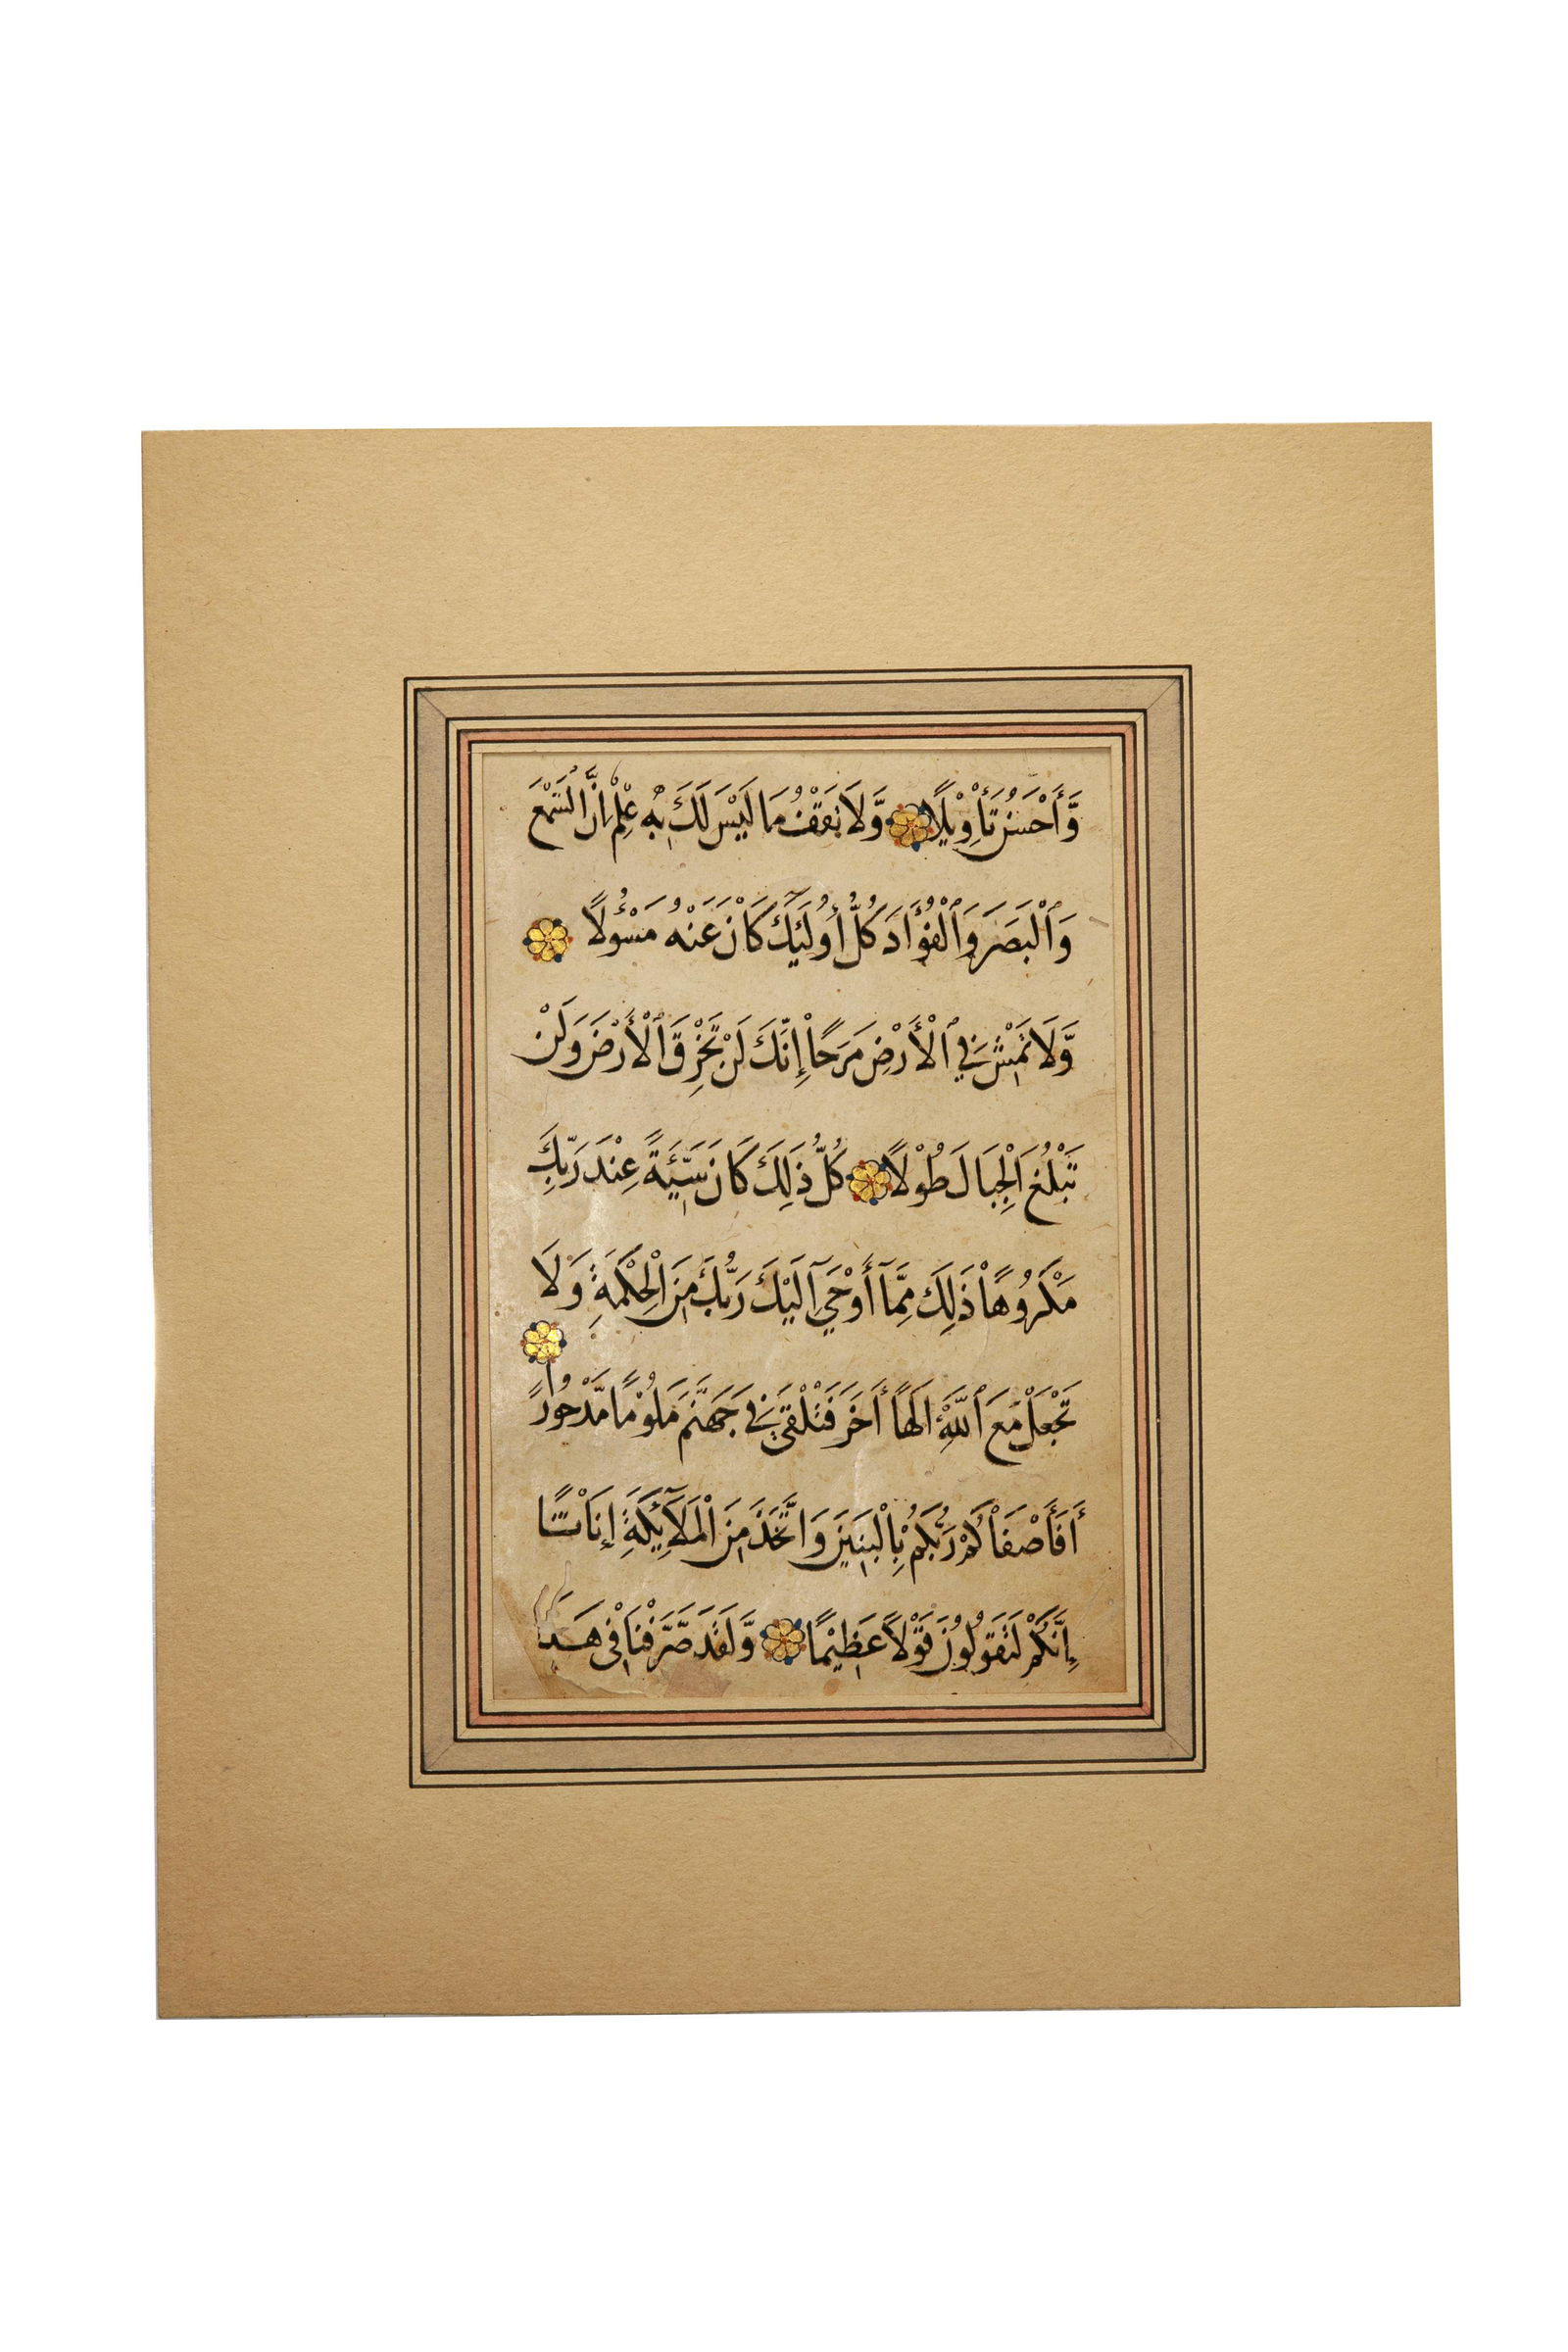 وَّأَحْسَنُ تَأْوِيْلًا وَّلَا تَقْفُ مَا لَيْسَ لَكَ بِهِ عِلْمٌ إِنَّ السَّمْعَ
وَٱلْبَصَرَ وَٱلْفُؤَادَ كُلُّ أُولَٰٓئِكَ كَانَ عَنْهُ مَسْـُٔوْلًا
وَّلَا تَمْشِ فِي ٱلْأَرْضِ مَرَحًا إِنَّكَ لَنْ تَخْرِقَ ٱلْأَرْضَ وَلَنْ
تَبْلُغَ الْجِبَالَ طُوْلًا كُلُّ ذَلِكَ كَانَ سَيِّئَةً عِنْدَ رَبِّكَ
مَكْرُوْهًا ذَلِكَ مِمَّآ أَوْحَىٰٓ اِلَيْكَ رَبُّكَ مِنَ الْحِكْمَةِ وَلَا
تَجْعَلْ مَعَ ٱللَّهِ اِلَهًا أَخَرَ فَتُلْقَىٰ فِي جَهَنَّمَ مَلُوْمًا مَّدْحُوْرًا
أَفَأَصْفَاكُمْ رَبُّكُمْ بِالْبَنِيْنَ وَاتَّخَذَ مِنَ الْمَلَآئِكَةِ إِنَاثًا
إِنَّكُمْ لَتَقُوْلُوْنَ قَوْلًا عَظِيْمًا وَّلَقَدْ صَرَّفْنَا فِي هَذَا